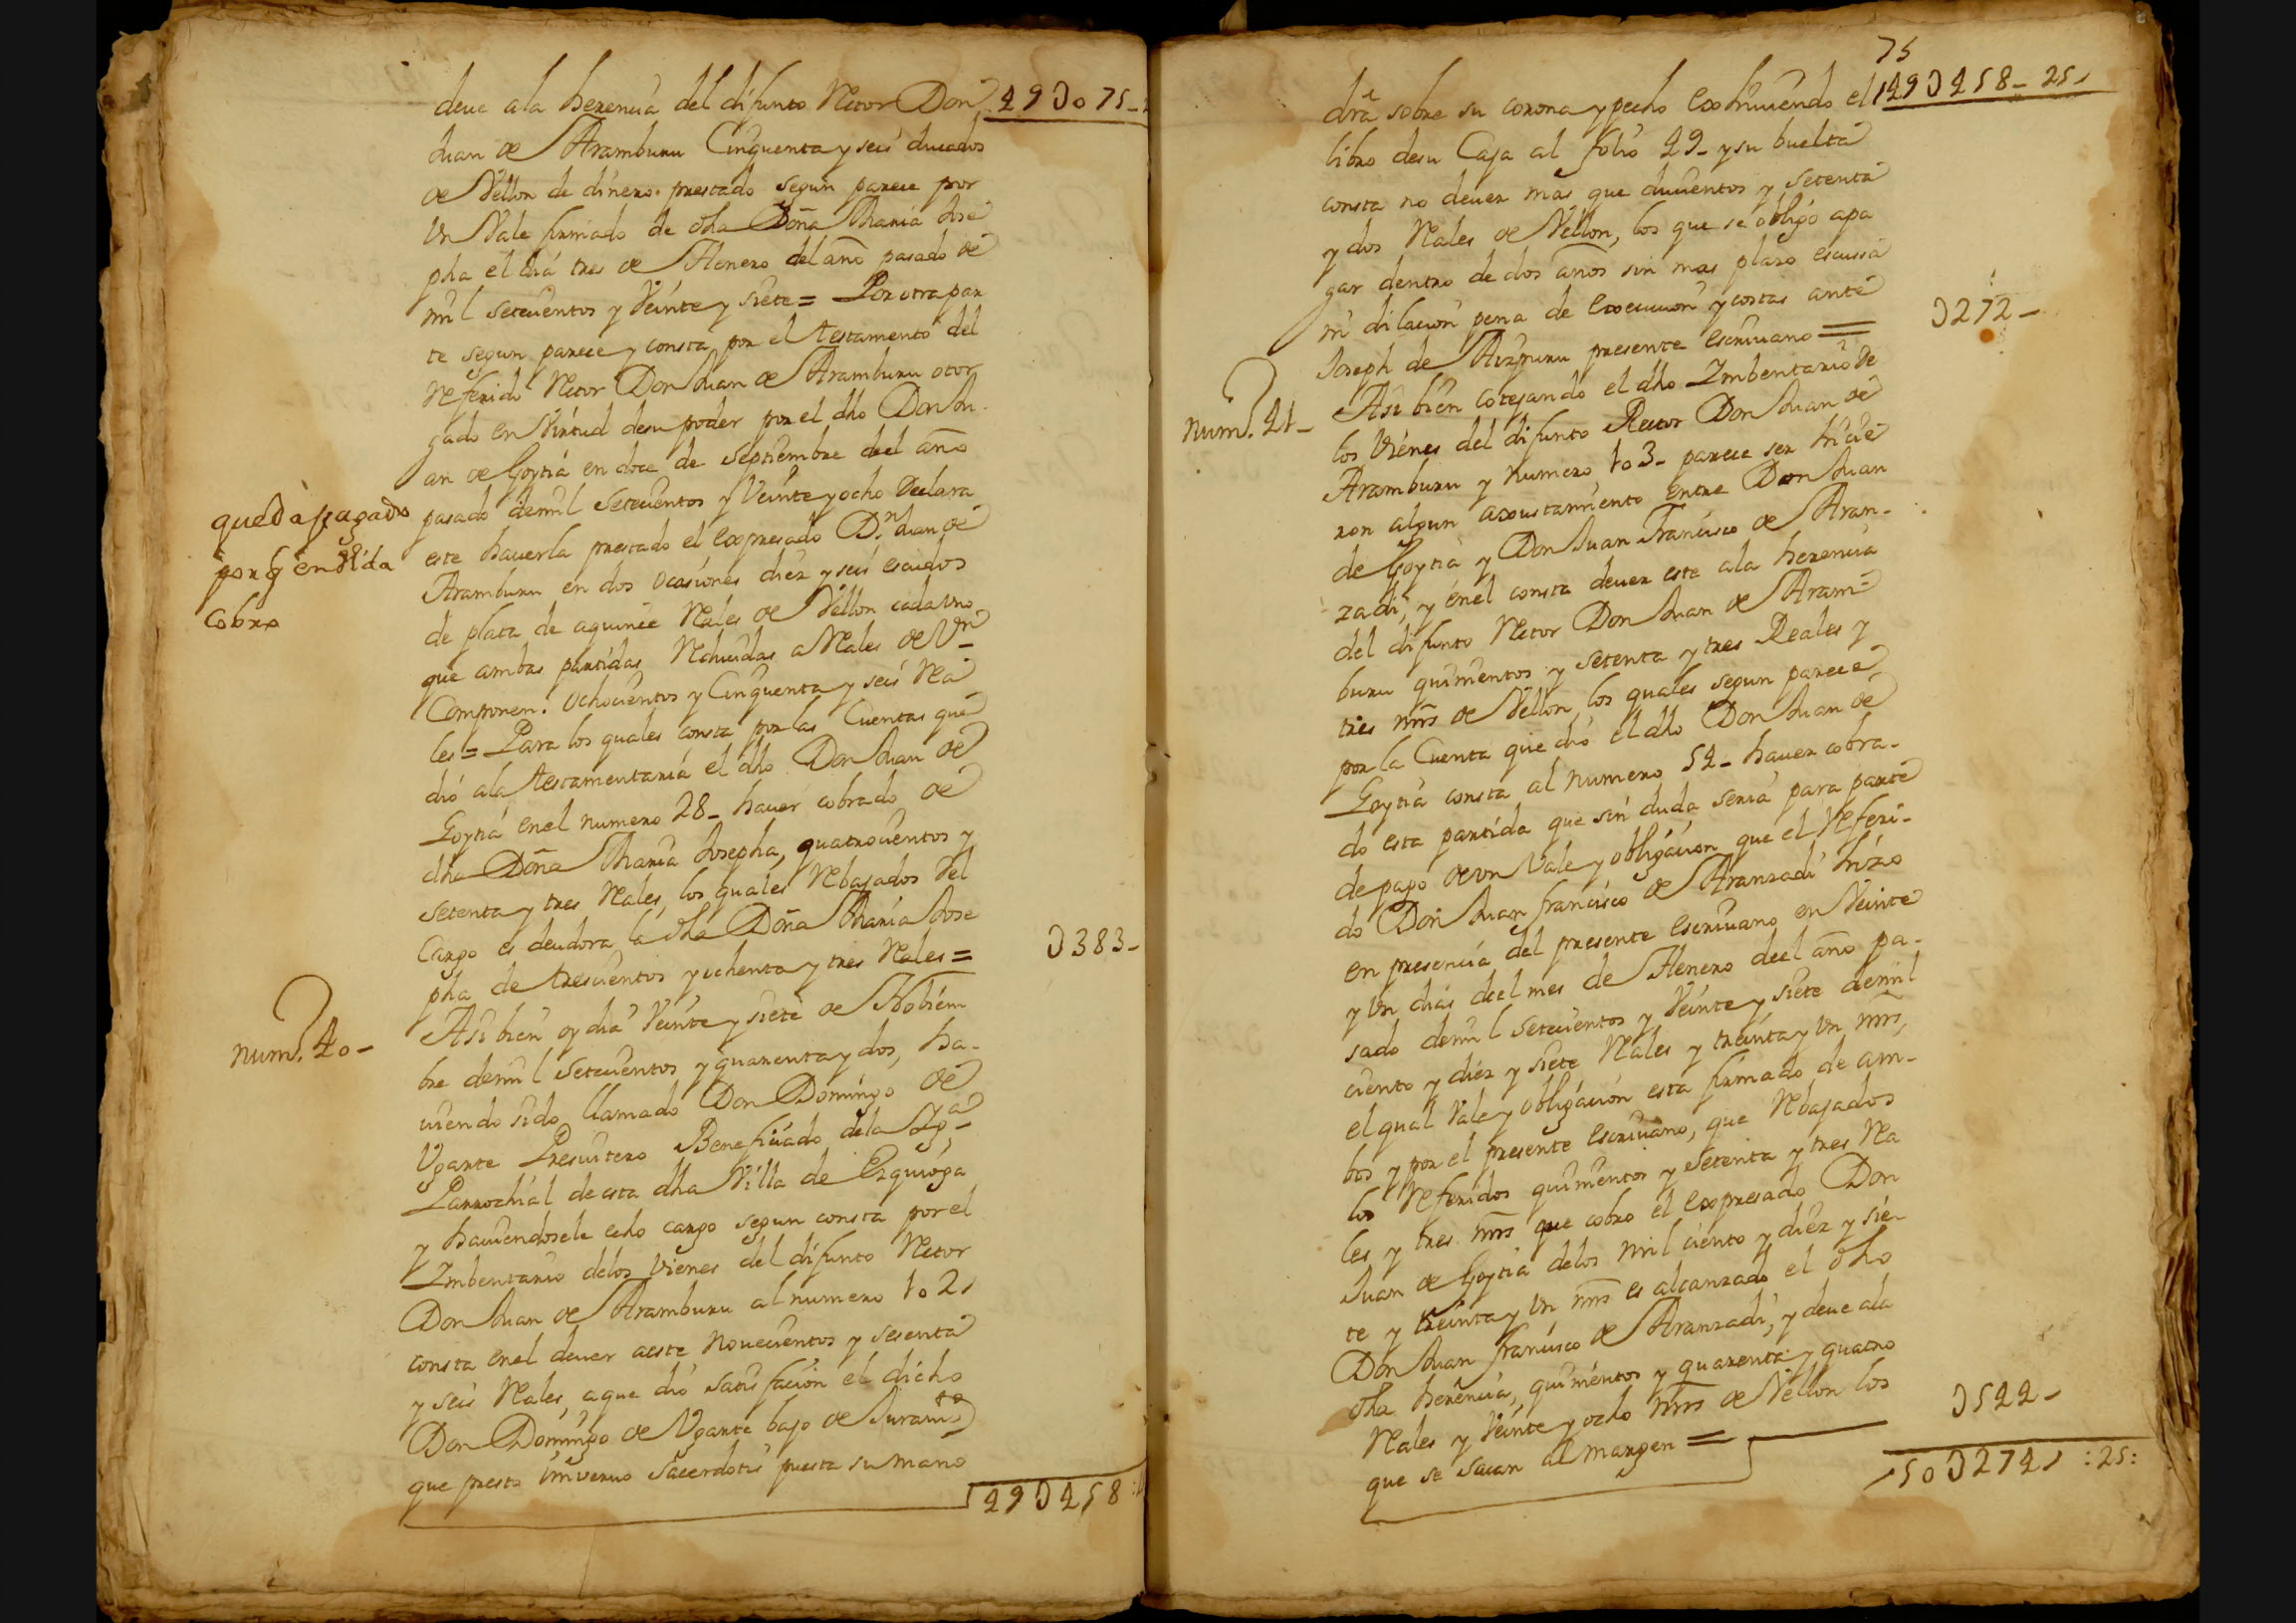 deue ala herencia del difunto Retor Don 49D075-
Juan de Aramburu Cinquenta y seis ducados
de Vellon de dinero prestado segun parece por
Un Vale firmado de dha Doña Maria Jose
pha el dia tres de Henero del año pasado de
mil setecientos y Veinte y siete = Por otra par
te segun parece y consta por el testamento del
Referido Retor Don Juan de Aramburu otor
gado en Virtud de su poder por el dho Don Ju
an de Goytia en doce de Septiembre deel año
pasado demil Setecientos y Veinte y ocho Declara
este hauerla prestado el expresado Dn. Juan de
Aramburu en dos ocasiones diez y seis escudos
de plata de aquince Reales de Vellon cada uno
que ambas partidas Reducidas a Reales de Vn
Componen. Ochocientos y Cinquenta y seis Rea
les = Para los quales consta por las Cuentas que
dió ala testamentaria el dho Don Juan de
Goytia enel numero 28- hauer cobrado de
dha Doña Maria Josepha, quatrocientos y
setenta y tres Reales, los quales Rebajados del
Cargo es deudora la dha Doña Maria Jose
pha de trescientos y ochenta y tres Reales = D383-
queda pagado
por q en Vida
cobro
num.º 40-
Asi bien oy dia Veinte y siete de Nobiem
bre demil Setecientos y quarenta y dos, ha-
uiendo sido llamado Don Domingo de
Ugarte Presuitero Beneficiado dela Yg.a
Parrochial de esta dha Villa de Ezquioga
y hauiendosele echo cargo segun consta por el
Imbentario delos Vienes del difunto Retor
Don Juan de Aramburu al numero 102,
consta enel deuer aeste nouecientos y sesenta
y seis Reales, aque dió satisfacion el dicho
Don Domingo de Ugarte bajo de Juramto
que presto inveruo Sacerdotis puesta su mano
49D458
75
dra sobre su corona y pecho exhiuiendo el 49D458-25,
libro desu Casa al folio 49- y su buelta
consta no deuer mas que ducientos y setenta
y dos Reales de Vellon, los que se obligó apa
gar dentro de dos años sin mas plazo escusa
ni dilacion pena de execucion y costas ante
Joseph de Aizpuru presente escriuano = D272-
num.º 41-
Asi bien cotejando el dho Imbentario de
los Vienes del difunto Rector Don Juan de
Aramburu y numero 103- parece ser hicie
ron algun axustamiento entre Don Juan
de Goytia y Don Juan Francisco de Aran-
zadi, y enel consta deuer este ala herencia
del difunto Retor Don Juan de Aram-
buru quinientos y setenta y tres Reales y
tres mrs de Vellon, los quales segun parece
por la Cuenta que dió el dho Don Juan de
Goytia consta al numero 54- hauer cobra-
do esta partida que sin duda seria para parte
de pago de un Vale y obligacion que el Referi-
do Don Juan francisco de Aranzadi hizo
en presencia del presente escriuano en Veinte
y Un dias deel mes de Henero deel año pa-
sado demil setecientos y Veinte y siete demil
ciento y diez y siete Reales y treinta y Un mrs,
el qual Vale y obligacion esta firmado de am-
bos y por el presente escriuano, que Rebajados
los Referidos quinientos y setenta y tres Rea
les y tres mrs que cobro el expresado Don
Juan de Goytia delos mil ciento y diez y sie-
te y treinta y Un mrs es alcanzado el dho
Don Juan francisco de Aranzadi, y deue ala
dha herencia, quinientos y quarenta y quatro
Reales y Veinte y ocho mrs de Vellon los D544-
que se sacan al margen =
50D274, :25: